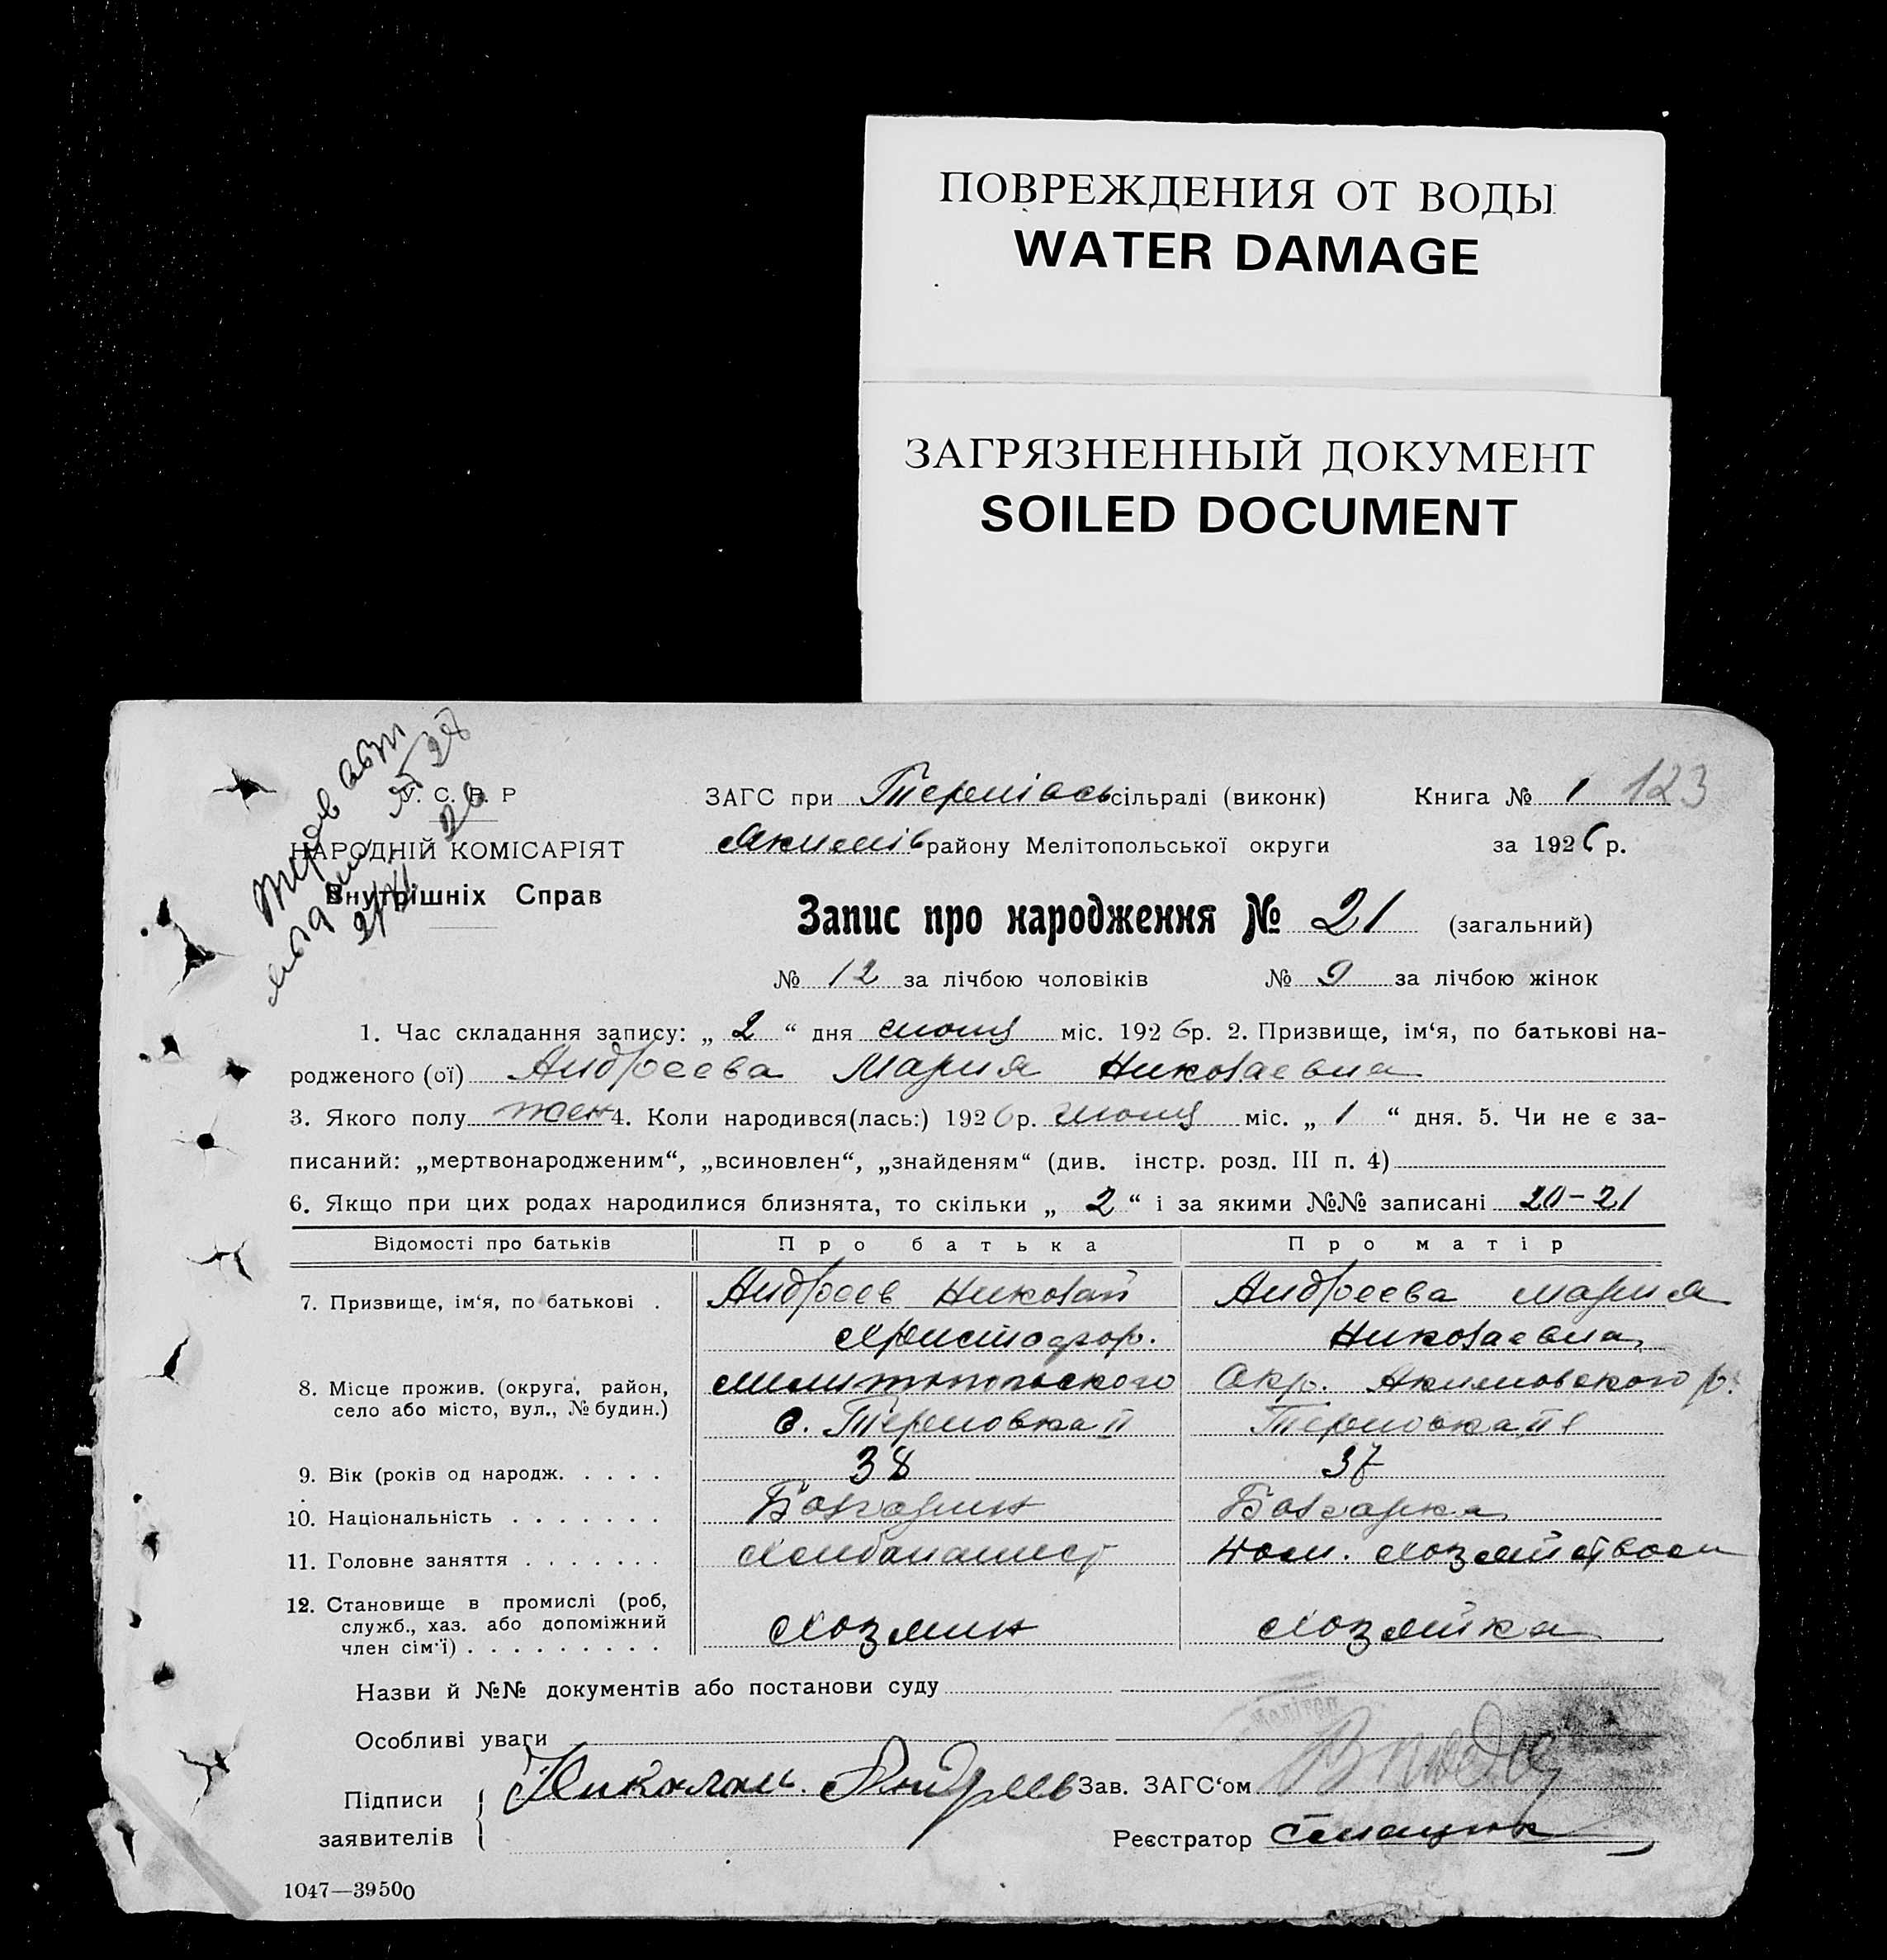 ПОВРЕЖДЕНИЯ ОТ ВОДЫ
WATER DAMAGE
ЗАГРЯЗНЕННЫЙ ДОКУМЕНТ
SOILED DOCUMENT
У. С. Р. Р
НАРОДНІЙ КОМІСАРІЯТ
Внутрішніх Справ
ЗАГС при Тернівськ сільраді (виконк) Книга № 1 123
Якимів району Мелітопольської округи за 1926 р.
Запис про народження № 21 (загальний)
№ 12 за лічбою чоловіків № 9 за лічбою жінок
1. Час складання запису: „ 2 “ дня міс. 1926р. 2. Призвище, ім‘я, по батькові на-
родженого (ої) Андреева Мария Николаевна
3. Якого полу жен 4. Коли народився(лась:) 1926р. міс. „ 1 “ дня. 5. Чи не є за-
писаний: „мертвонародженим“, „всиновлен“, „знайденям“ (див. інстр. розд. III п. 4)
6. Якщо при цих родах народилися близнята, то скільки „ 2 “ і за якими №№ записані 20-21
Відомості про батьків Про батька Про матір
7. Призвище, ім‘я, по батькові . Андреев Николай Андреева Мария
Христофор. Николаевна
8. Місце прожив. (округа, район, Мелитопольского Окр. Акимовского р.
село або місто, вул., № будин.) с. Терновка II Терновка II
9. Вік (років од народж. . . . . 38 37
10. Національність . . . . . . . Болгарин Болгарка
11. Головне заняття . . . . . . . Хлебопашест Дом. хозяйством
12. Становище в промислі (роб,
служб., хаз. або допоміжний Хозяин хозяйка
член сім‘ї) . . . . . . . . .
Назви й №№ документів або постанови суду
Особливі уваги
Підписи Николай Андреев Зав. ЗАГС‘ом
заявителів Реєстратор
1047—39500